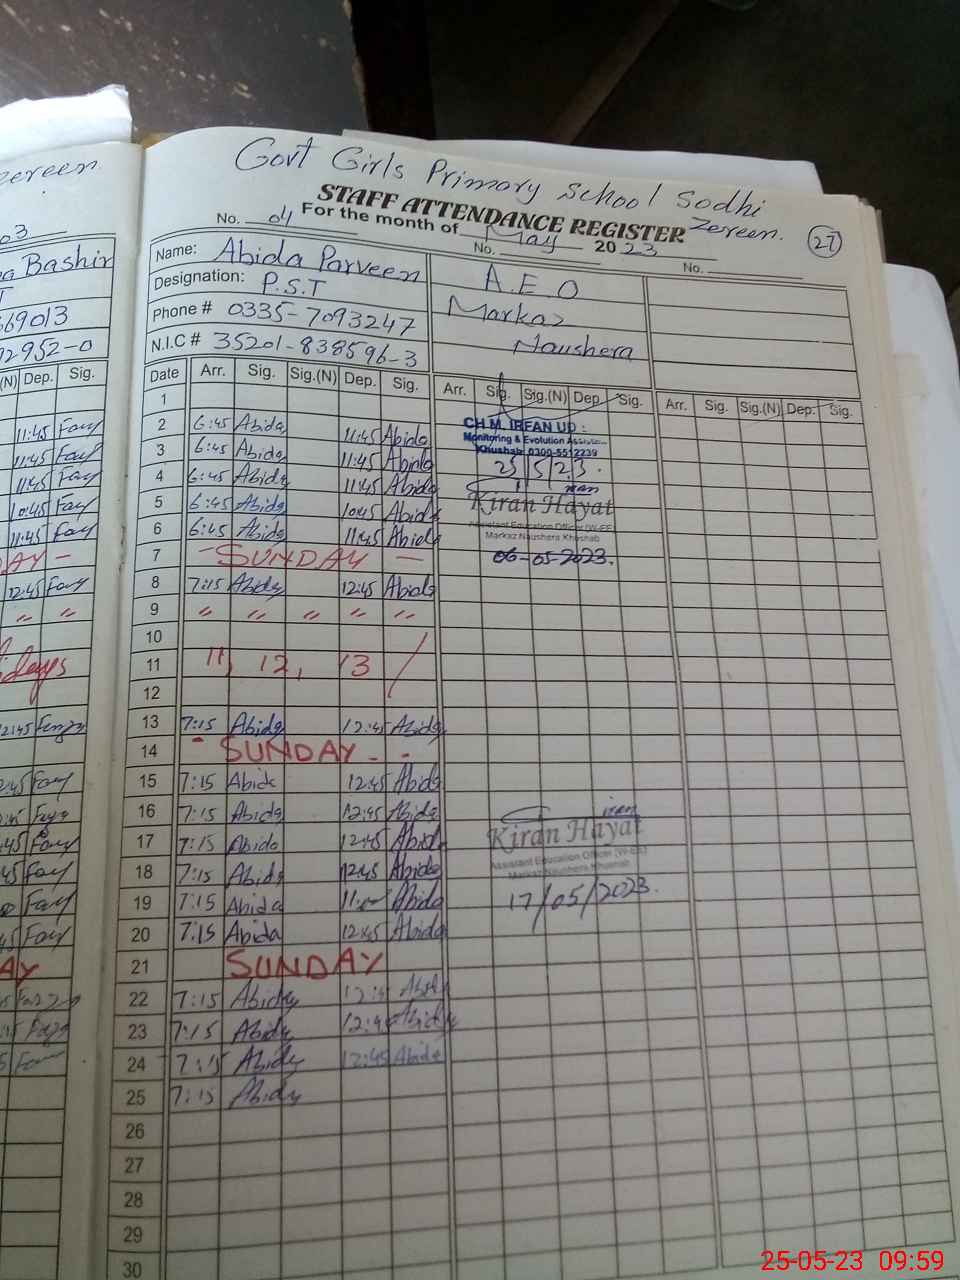 zereen.
03
Bashir
T
69013
2952-0
(N) Dep. Sig.
11:45 Fay
11:45 Fay
11:45 Fay
10:45 Fay
11:45 Fay
DAY -
12:45 Fay
" " "
Govt Girls Primary School Sodhi
Zereen.
STAFF ATTENDANCE REGISTER
27
For the month of May 2023
No. 04 No. No.
Name: Abida Parveen A.E.O
Designation: P.S.T Markaz
Phone # 0335-7093247 Naushera
N.I.C # 35201-838596-3
Date Arr. Sig. Sig.(N) Dep. Sig. Arr. Sig. Sig.(N) Dep. Sig. Arr. Sig. Sig.(N) Dep. Sig.
1
2 6:45 Abida 11:45 Abida
3 6:45 Abida 11:45 Abida
4 6:45 Abida 11:45 Abida
5 6:45 Abida 10:45 Abida
6 6:45 Abida 11:45 Abida
7 - SUNDAY -
8 7:15 Abida 12:45 Abida
9 " " " " "
10
11 11, 12, 13 /
12
13 7:15 Abida 12:45 Abida
14 - SUNDAY - -
15 7:15 Abida 12:45 Abida
16 7:15 Abida 12:45 Abida
17 7:15 Abida 12:45 Abida
18 7:15 Abida 12:45 Abida
19 7:15 Abida Abida
20 7:15 Abida 12:45 Abida
21 SUNDAY
22 7:15 Abida Abida
23 7:15 Abida 12:45 Abida
24 7:15 Abida 12:45 Abida
25 7:15 Abida
26
27
28
29
30
CH M. IRFAN UD :
Monitoring & Evolution
Khushab 0300-5512239
25 5 23.
Kiran Hayat
Assistant Education Officer (W-EE)
Markaz Naushera Khushab
06-05-2023.
Kiran Hayat
Assistant Education Officer (W-EE)
Markaz Naushera Khushab
17/05/2023.
25-05-23 09:59